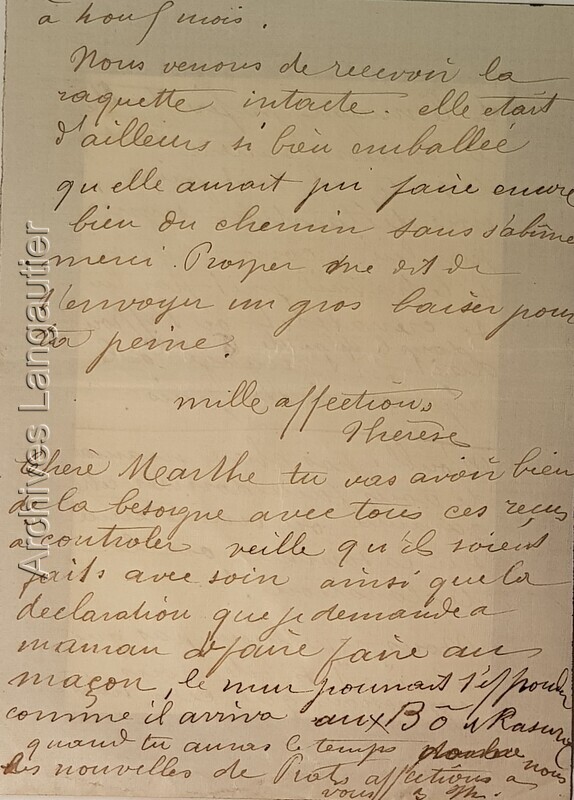 à nous mois.
Nous venons de recevoir la
raquette intacte. elle etait
d'ailleurs si bien emballée
qu'elle aurait pu faire encore
bien du chemin sans s'abîmer
merci. Prosper me dit de
t'envoyer un gros baiser pour
ta peine.
mille affections
Thérèse
Chère Marthe tu vas avoir bien
de la besogne avec tous ces reçus
a controler veille qu'ils soient
faits avec soin ainsi que la
declaration que je demande a
maman de faire faire au
maçon, le mur pourrait s'effondrer
comme il arriva aux
quand tu auras le temps donne nous
des nouvelles de affections a
vous 3 Th.
Archives Langautier